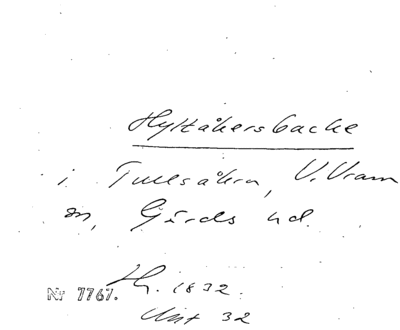 Hyltåkersbacke
i Tullsåkra, V. Vram
sn, Gärds hd.
Nr 7767.
H. 1832.
Utst 32